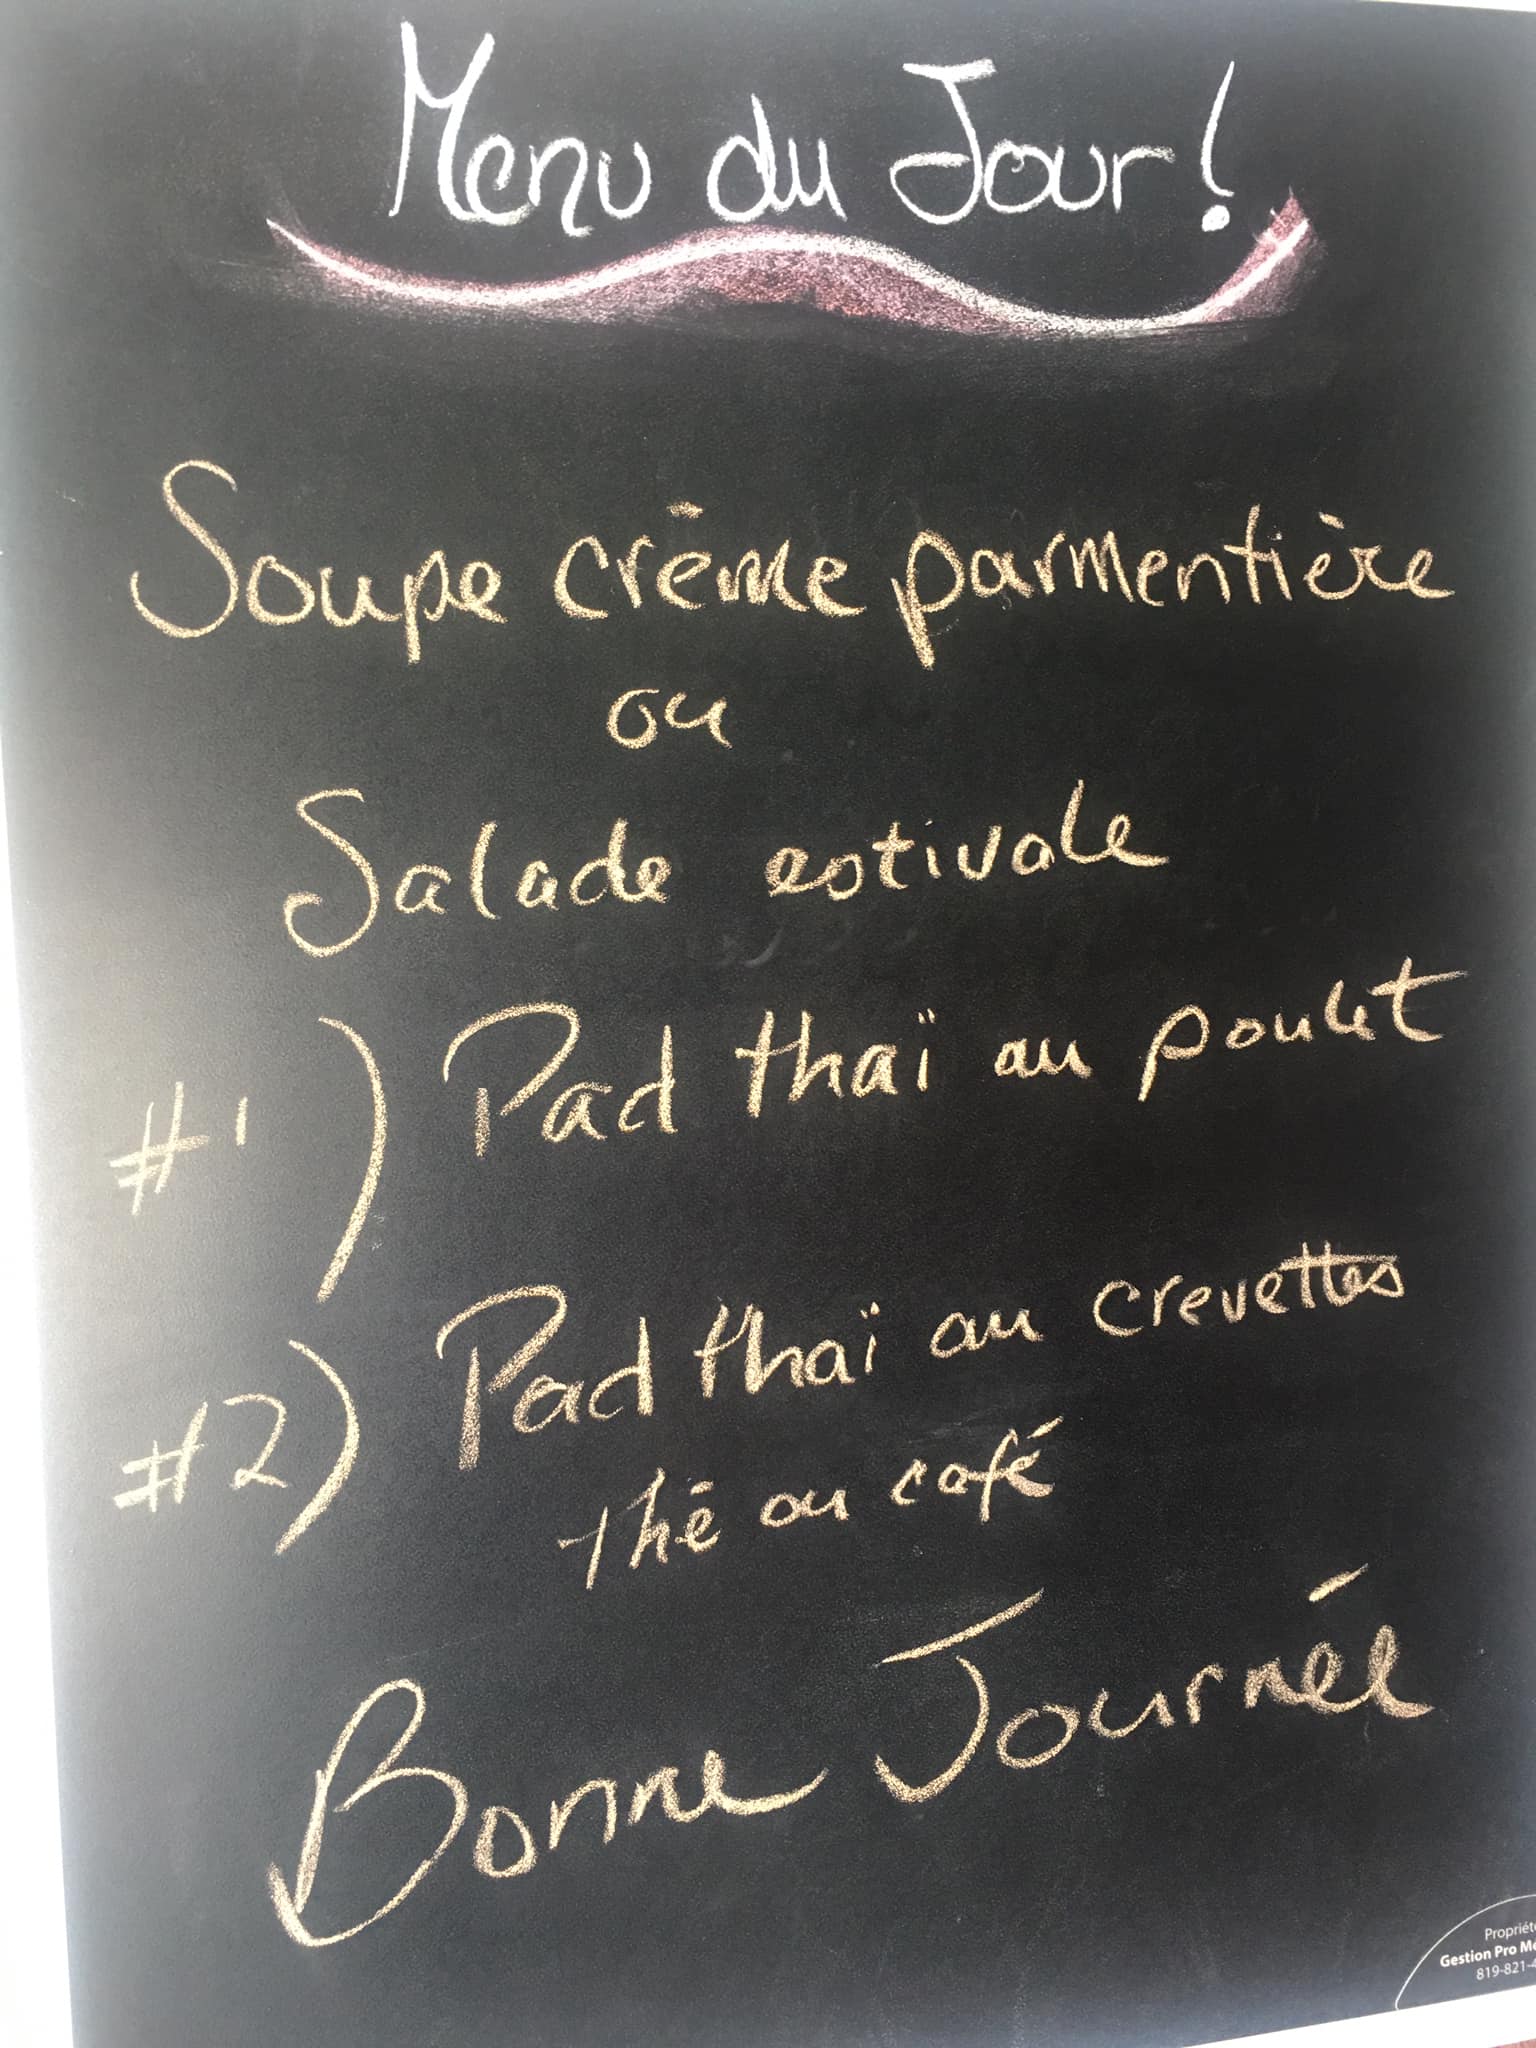 Menu du Jour!
Soupe crème parmentière
ou
Salade estivale
#1) Pad thaï au poulet
#2) Pad thaï au crevettes
Thé ou café
Bonne Journée
Propriété
Gestion Pro
819-821-